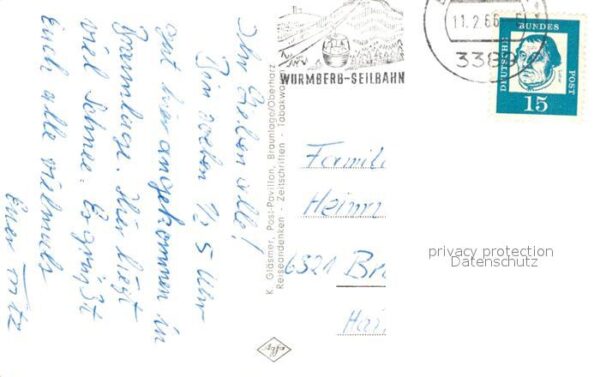 Ihr Lieben alle!
Bin soeben 1/2 5 Uhr
gut hier angekommen in
Braunlage. Hier liegt
viel Schnee. Es grüßt
Euch alle vielmals
Euer Fritz
K. Gläsmer, Post-Pavillon, Braunlage/Oberharz
Reiseandenken - Zeitschriften - Tabakwa
WURMBERG-SEILBAHN
11.2.66
338
DEUTSCHE BUNDES POST
15
Famili
Heinri
6321 Br
Hai
privacy protection
Datenschutz